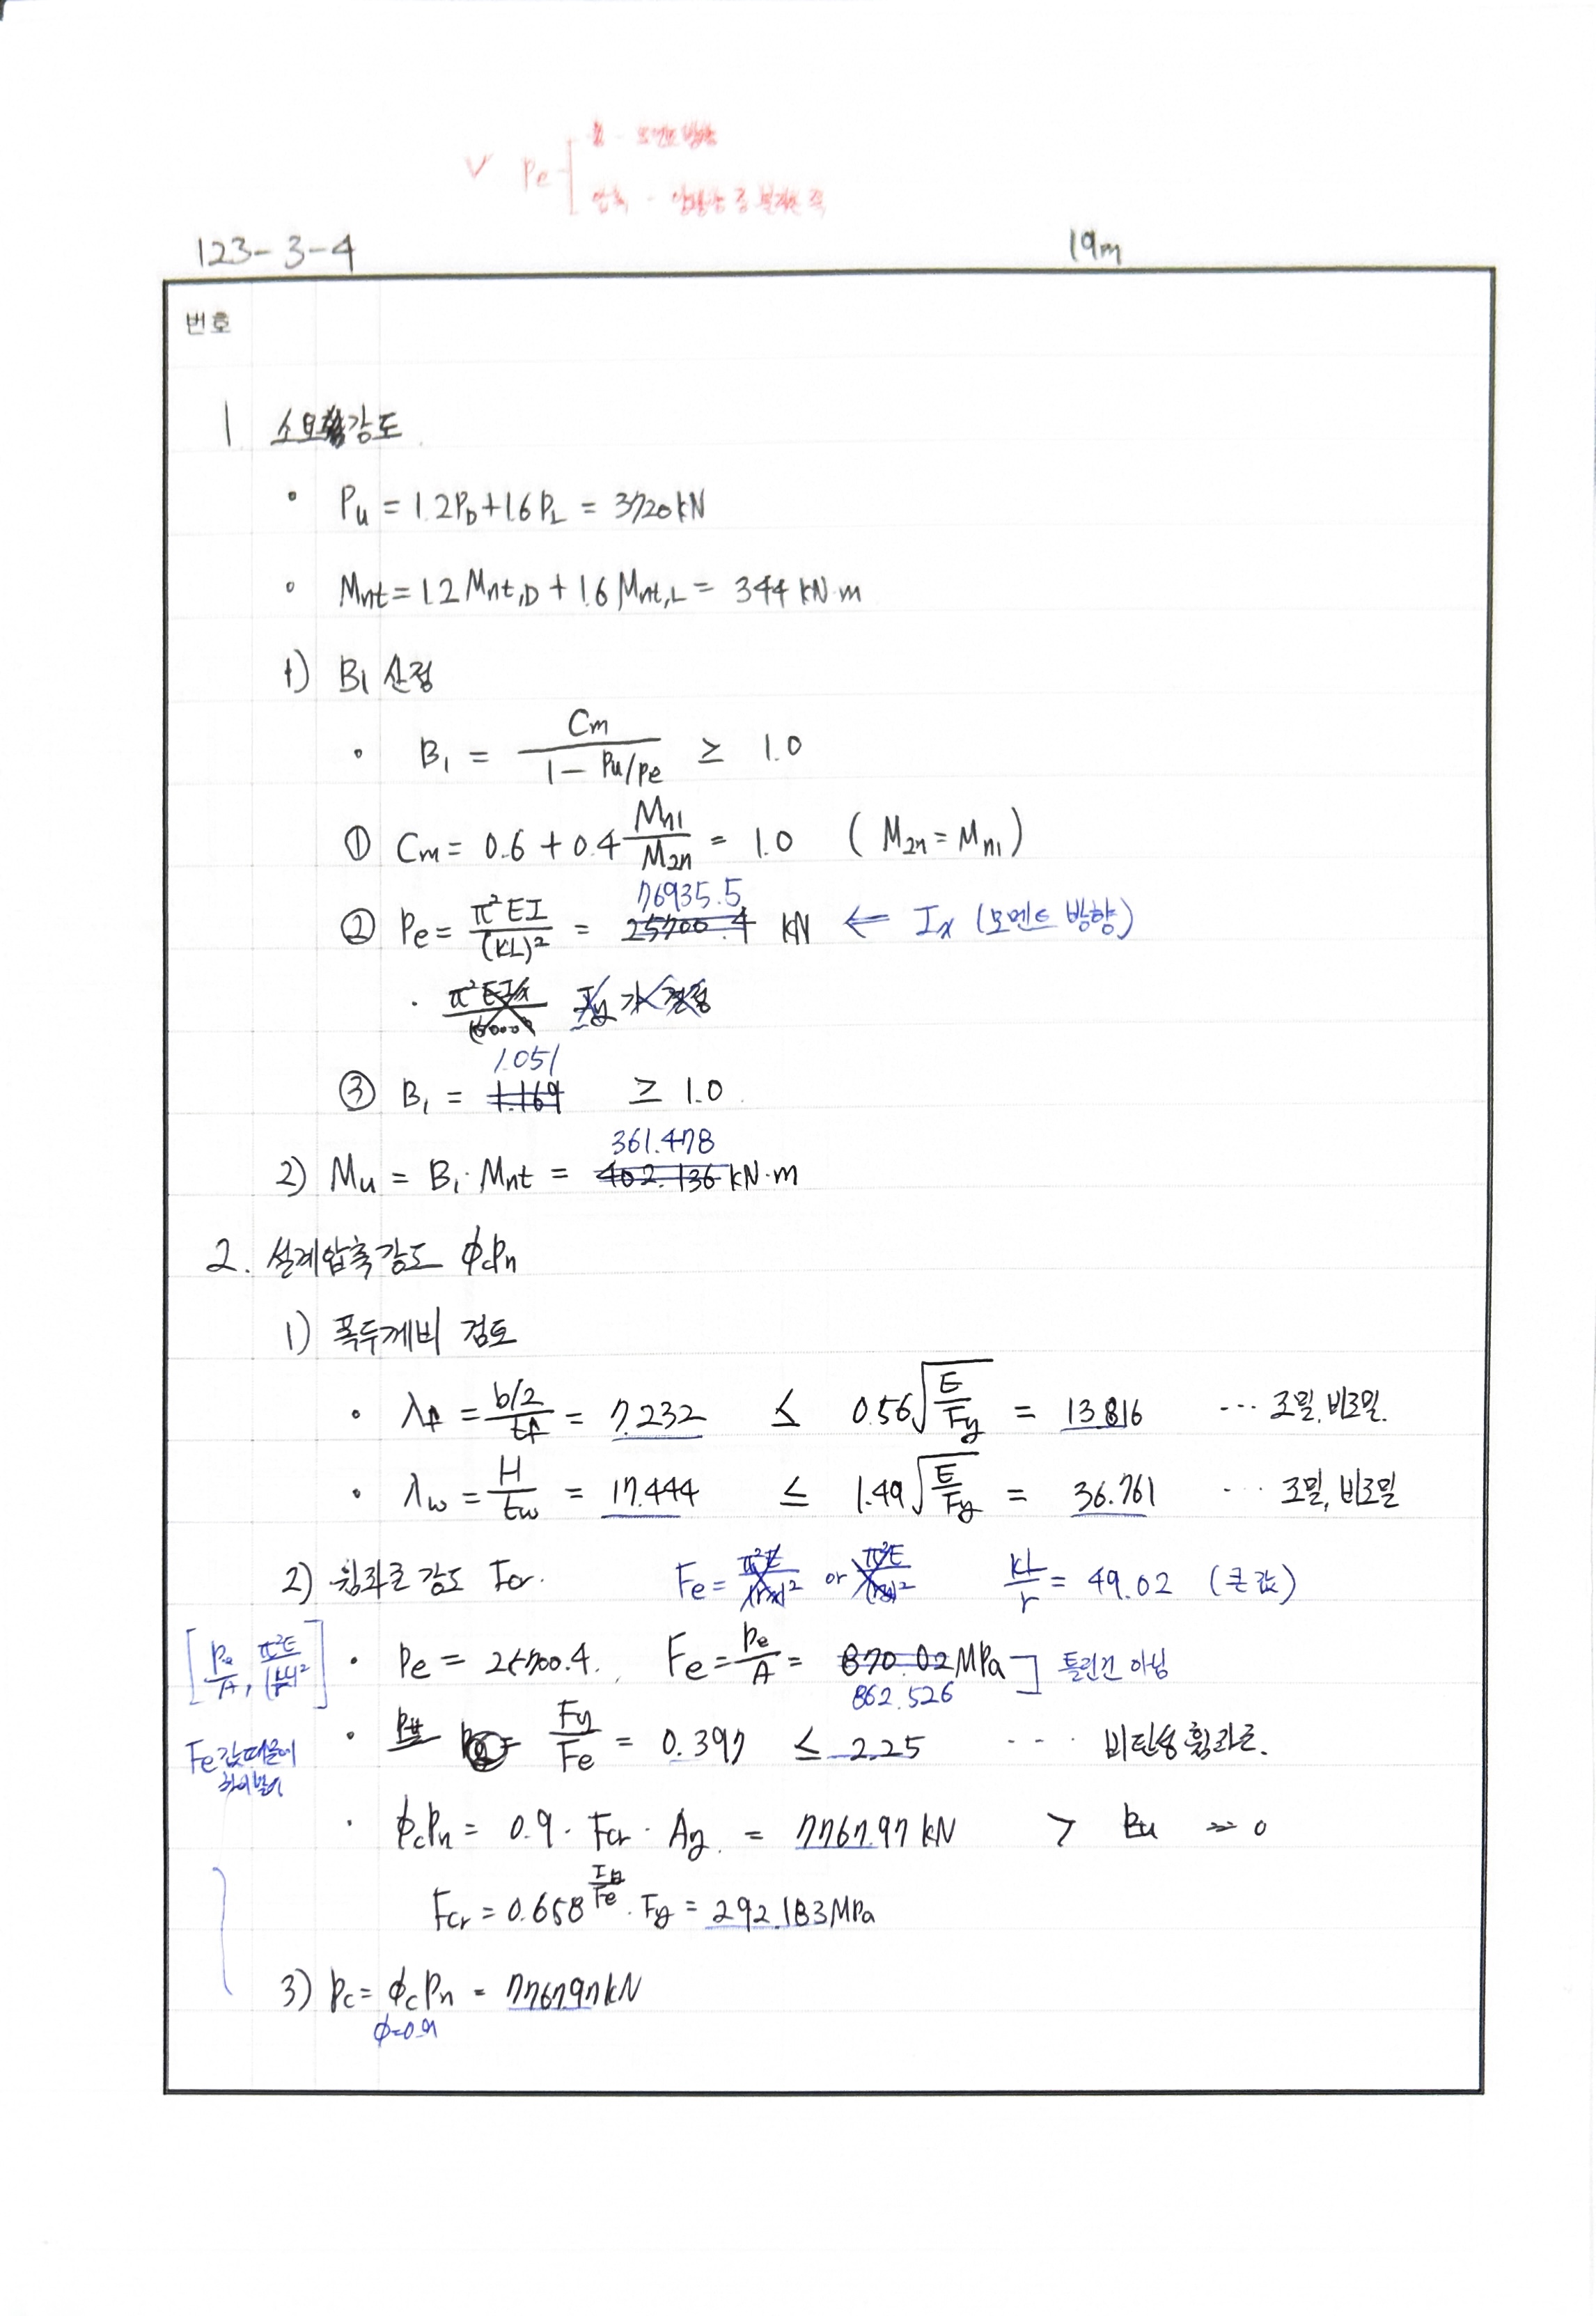 휨 - 모멘트 방향
V Pe
압축 - 양방향 중 불리한 쪽
123-3-4
19m
번호
1 소요강도
• Pu = 1.2PD+1.6PL = 3720kN
• Mnt = 1.2Mnt,D + 1.6Mnt,L = 344 kN·m
1) B1 산정
• B1 = Cm / (1 - Pu/Pe) ≥ 1.0
① Cm = 0.6 + 0.4 Mn1/M2n = 1.0 (M2n = Mn1)
76935.5
② Pe = π²EI/(KL)² = 25700.4 kN ← Ix (모멘트 방향)
· π²EIx
Iy가 결정
1.051
③ B1 = 1.169 ≥ 1.0
361.478
2) Mu = B1·Mnt = 402.136 kN·m
2. 설계압축강도 φcPn
1) 폭두께비 검토
• λf = (b/2)/tf = 7.232 ≤ 0.56√(E/Fy) = 13.816 ··· 조밀,비조밀.
• λw = H/tw = 17.444 ≤ 1.49√(E/Fy) = 36.761 ··· 조밀, 비조밀
2) 휨좌굴 강도 Fcr. Fe = π²E/(rx)² or π²E/(ry)² KL/r = 49.02 (큰 값)
[Pe/A, π²E/(KL/r)²] • Pe = 25700.4. Fe = Pe/A = 870.02 MPa ] 틀린건 아님
862.526
• Fy/Fe = 0.397 ≤ 2.25 ··· 비탄성 휨좌굴.
Fe값 때문에
차이 발생
· φcPn = 0.9 · Fcr · Ag = 7767.97 kN > Pu ⇒ 0
Fcr = 0.658^(Fy/Fe) · Fy = 292.183MPa
3) Pc = φcPn = 7767.97kN
φ=0.9